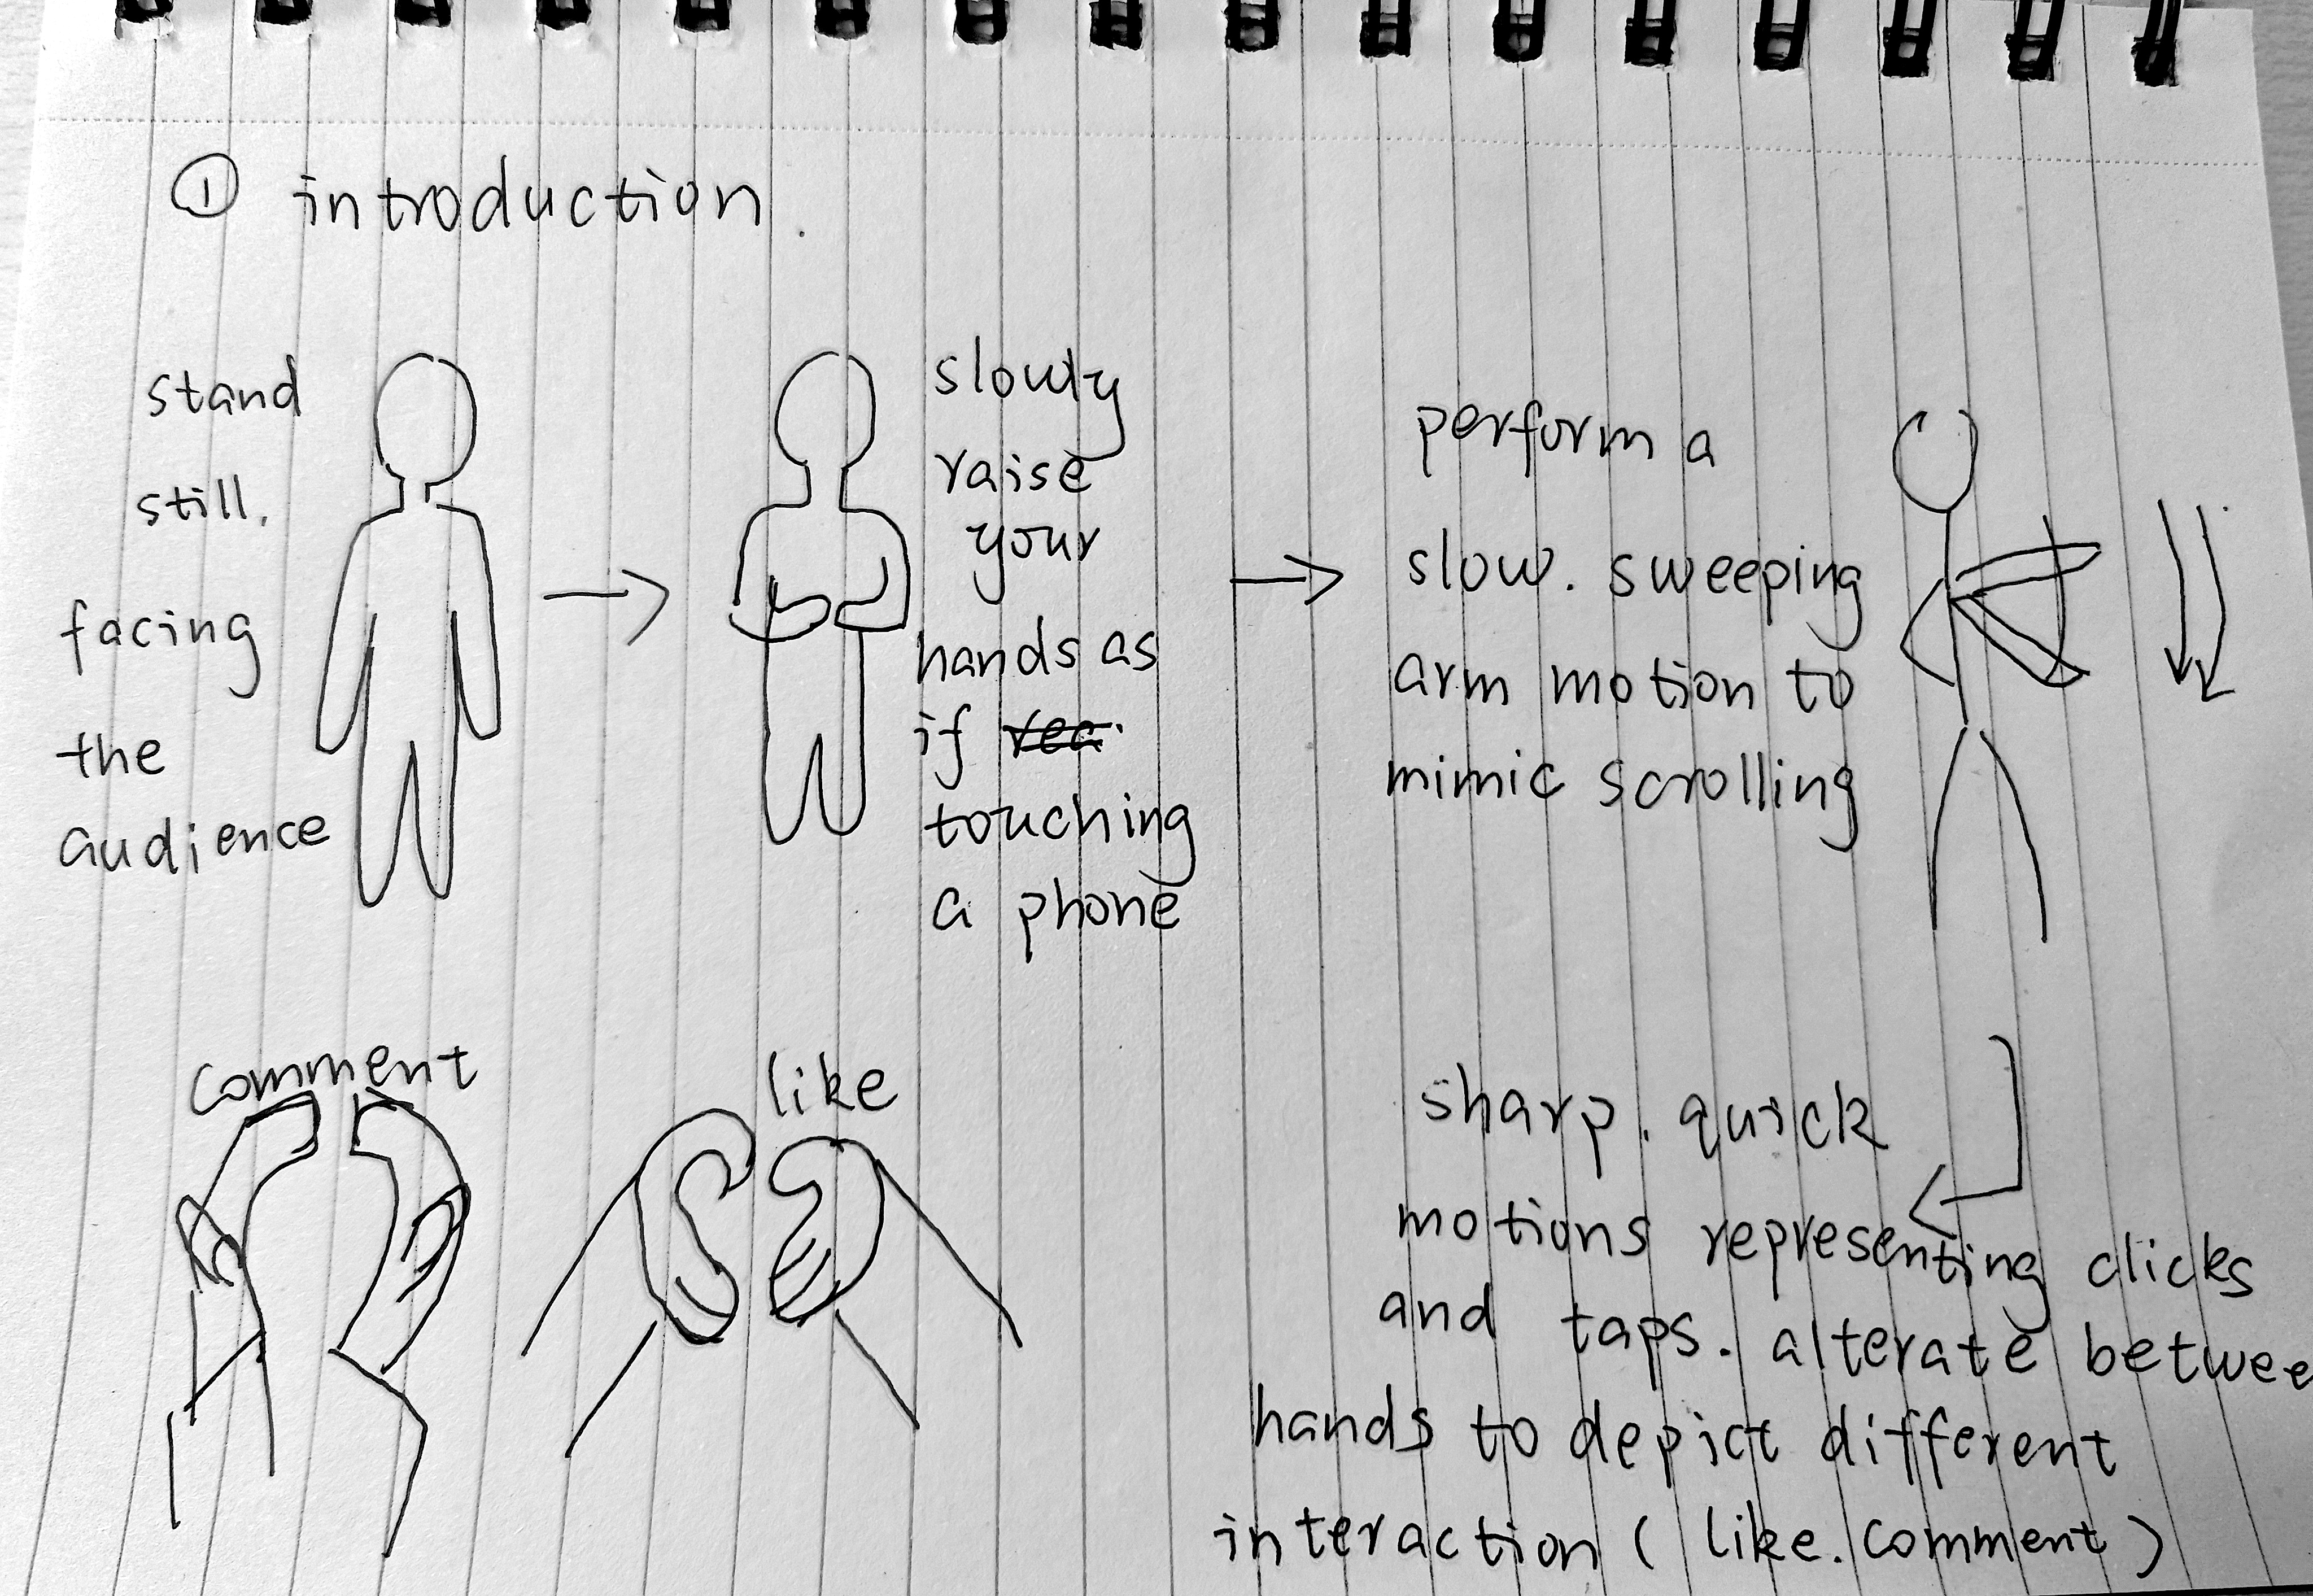 ① introduction.
stand
still.
facing
the
audience
slowly
raise
your
hands as
if rea.
touching
a phone
perform a
slow. sweeping
arm motion to
mimic scrolling
comment
like
sharp. quick
motions representing clicks
and taps. alterate betwee
hands to depict different
interaction ( like. comment )